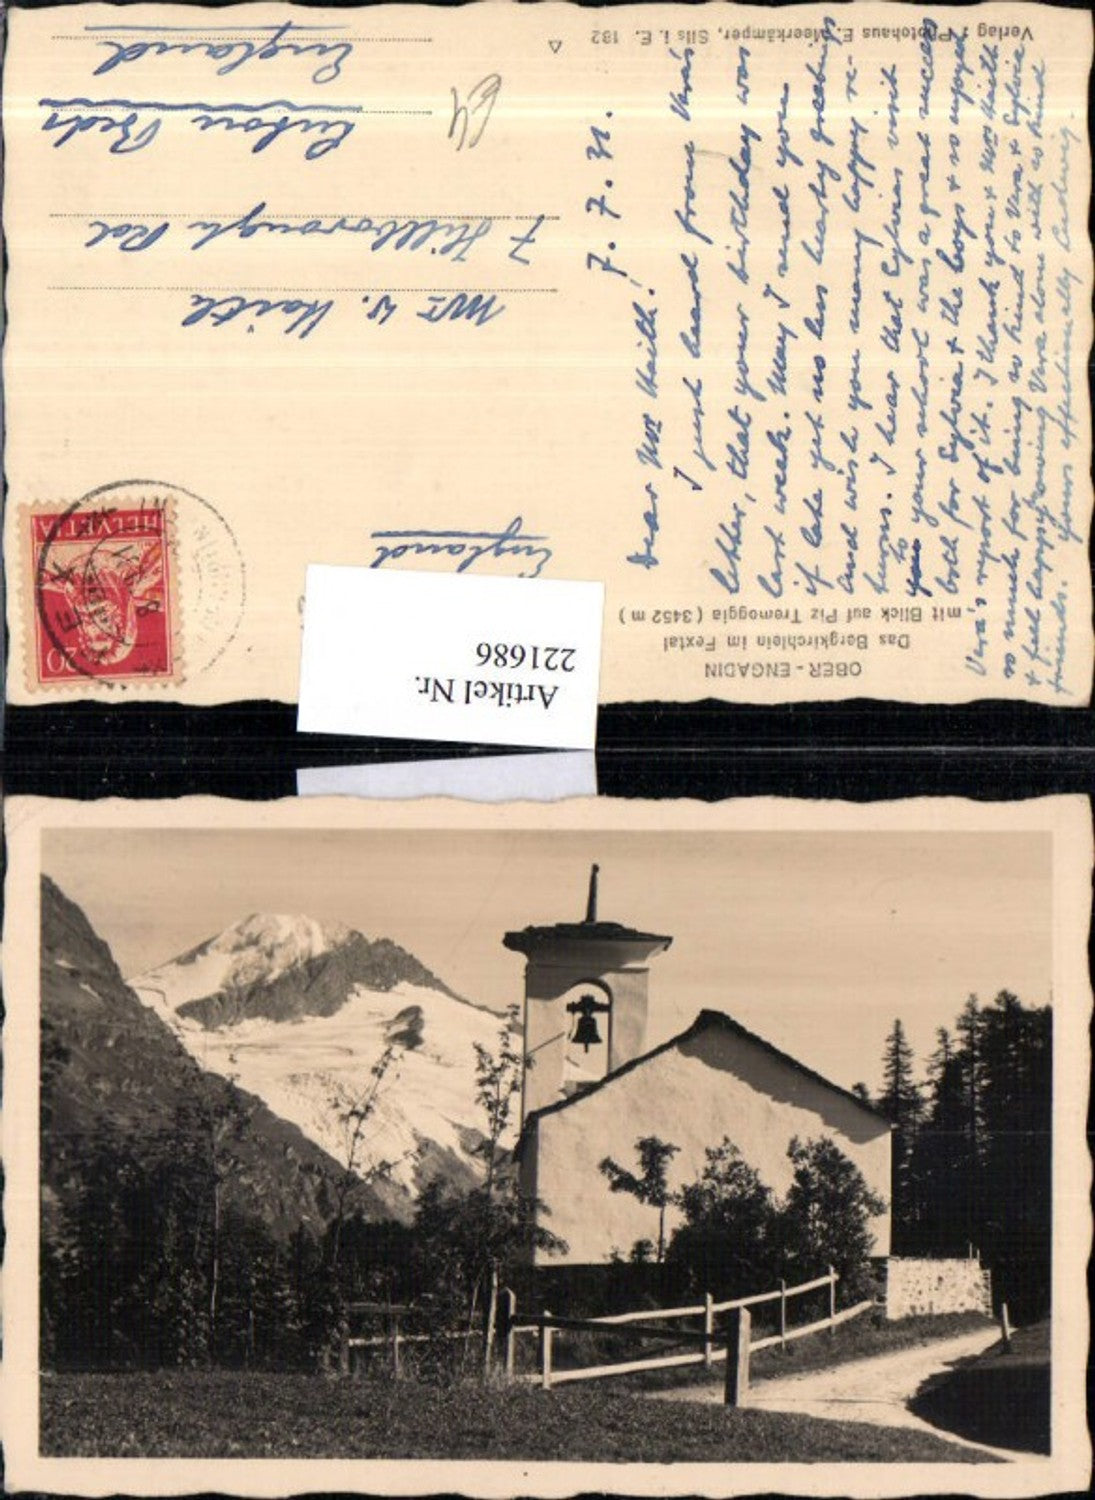 OBER-ENGADIN
Das Bergkirchlein im Fextal
mit Blick auf Piz Tremoggia (3452 m)
Verlag Photohaus E. Meerkämper, Sils i. E. 132
7. 7. 31.
Dear Mr Haith!
I just heard from Vera's
letter, that your birthday was
last week. May I send you
if late yet no less hearty greetings
and wish you many happy re-
turns. I hear that Sylvias visit
to your school was a great success
both for Sylvia & the boys & so enjoyed
Vera's report of it. I thank you & Mrs Haith
so much for being so kind to Vera & Sylvia
& feel happy knowing Vera alone with so kind
friends. Yours affectionally Ludwig.
Mr W. Haith
7 Hillborough Rd
Luton Beds
England
England
HELVETIA
20
Artikel Nr.
221686